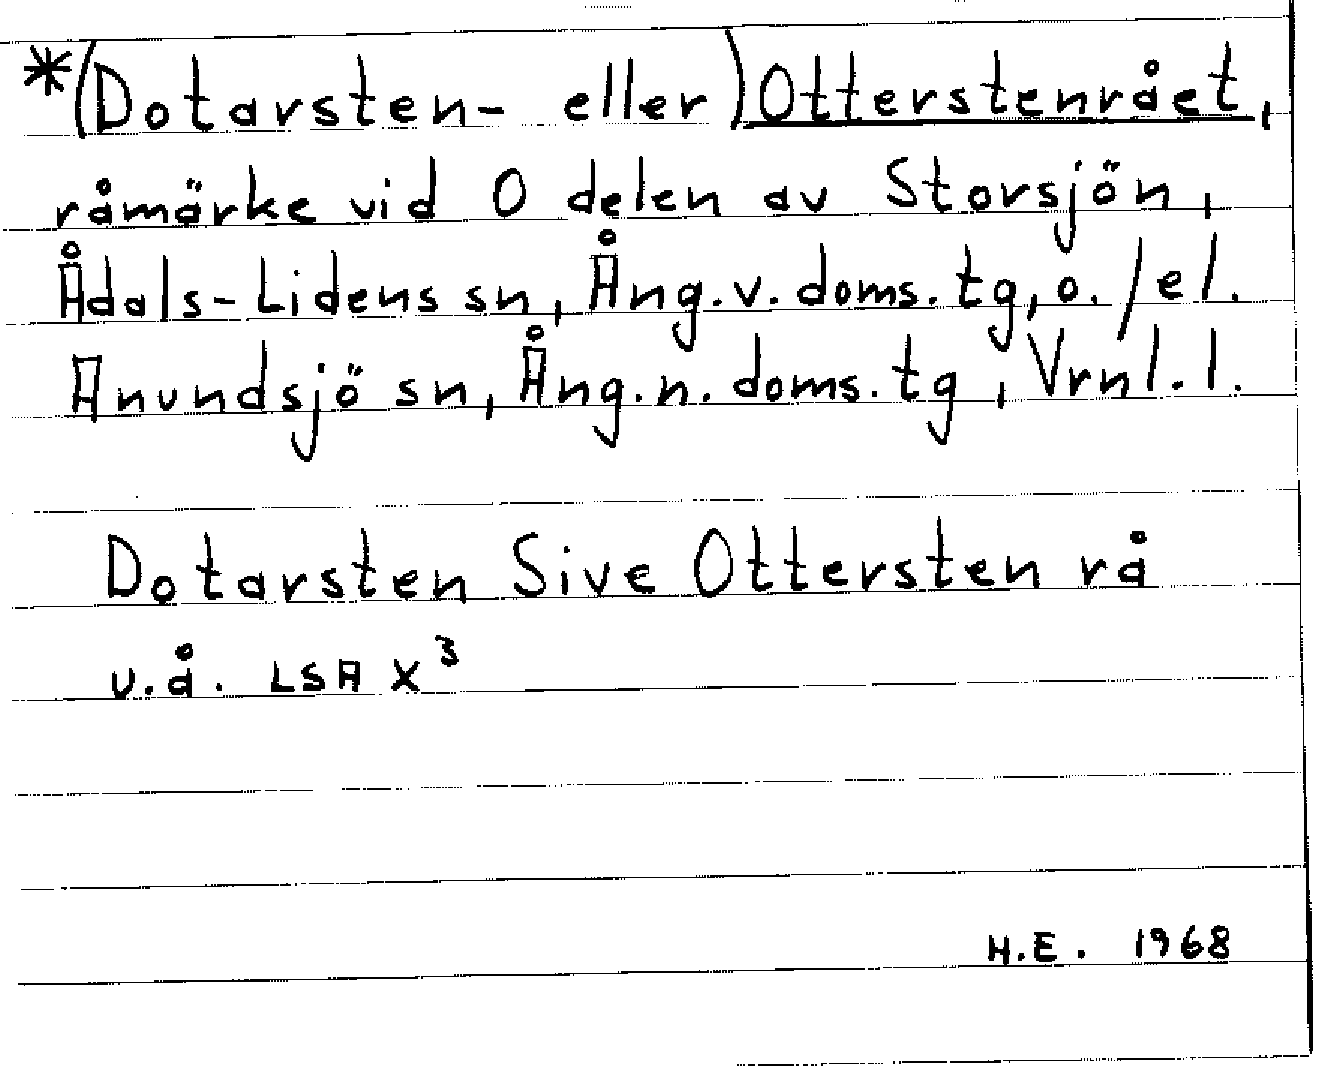 *(Dotarsten- eller) Otterstenrået,
råmärke vid O delen av Storsjön,
Ådals-Lidens sn, Ång.v.doms.tg, o./el.
Anundsjö sn, Ång.n.doms.tg, Vrnl.l.
Dotarsten Sive Ottersten rå
u.å. LSA X³
H.E. 1968